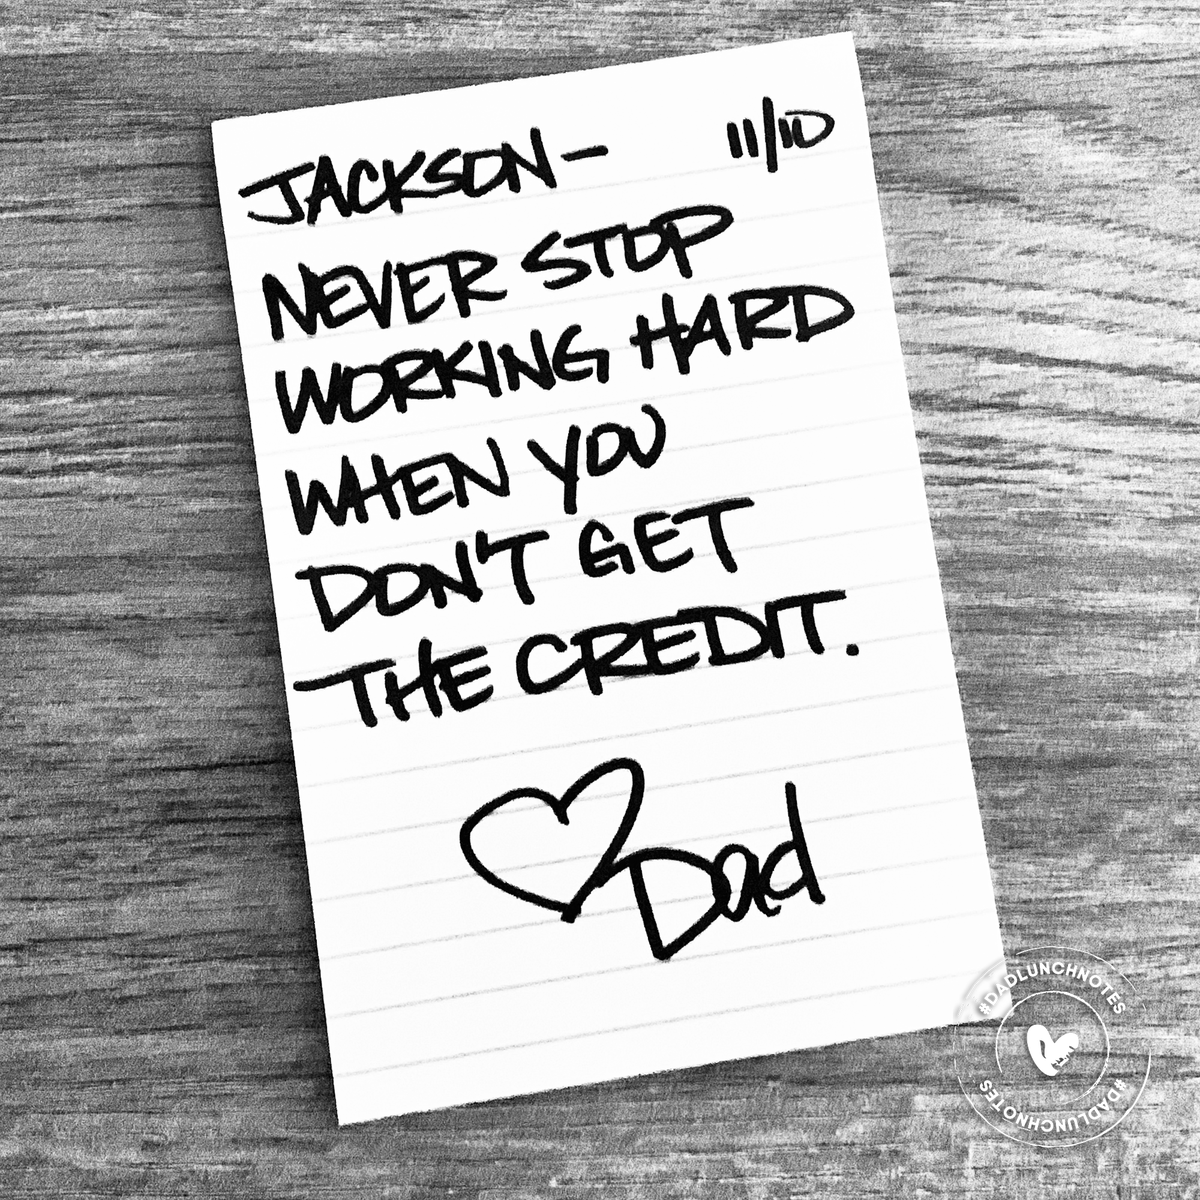 JACKSON— 11/10
NEVER STOP
WORKING HARD
WHEN YOU
DON'T GET
THE CREDIT.
Dad
#DADLUNCHNOTES
#DADLUNCHNOTES